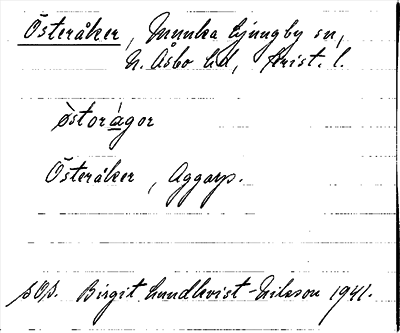 Österåker, Munka Ljungby sn,
N. Åsbo hd, Krist. l.
òstorágor
Österåker, Aggarp.
Birgit Lundkvist-Nilsson 1941.